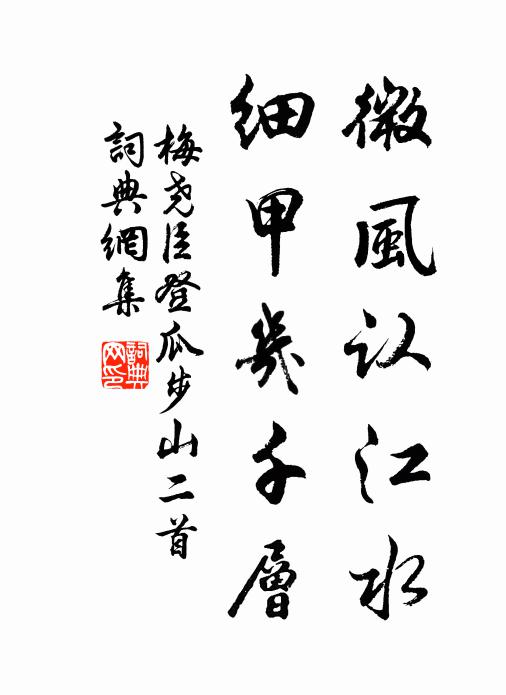 微風认江水
細甲幾千層
梅尧臣登瓜步山二首
詞典網集
詞典网印